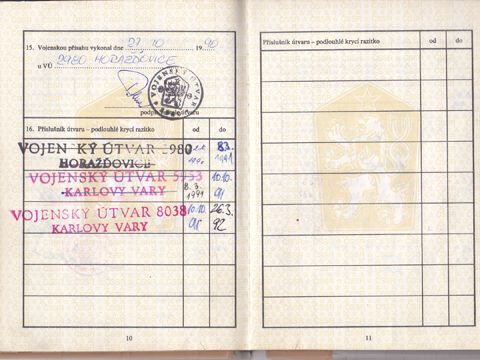 15. Vojenskou přísahu vykonal dne 27 10 1990
u VÚ 2980 HORAŽĎOVICE
VOJENSKÝ ÚTVAR
podpis
16. Příslušník útvaru – podlouhlé krycí razítko od do
VOJENSKÝ ÚTVAR 2980 8.3.
HORAŽĎOVICE 1991
VOJENSKÝ ÚTVAR 5953 10.10.
KARLOVY VARY 8.3. 1991 91
VOJENSKÝ ÚTVAR 8038 10.10. 26.3.
KARLOVY VARY 91 92
10
Příslušník útvaru – podlouhlé krycí razítko od do
11